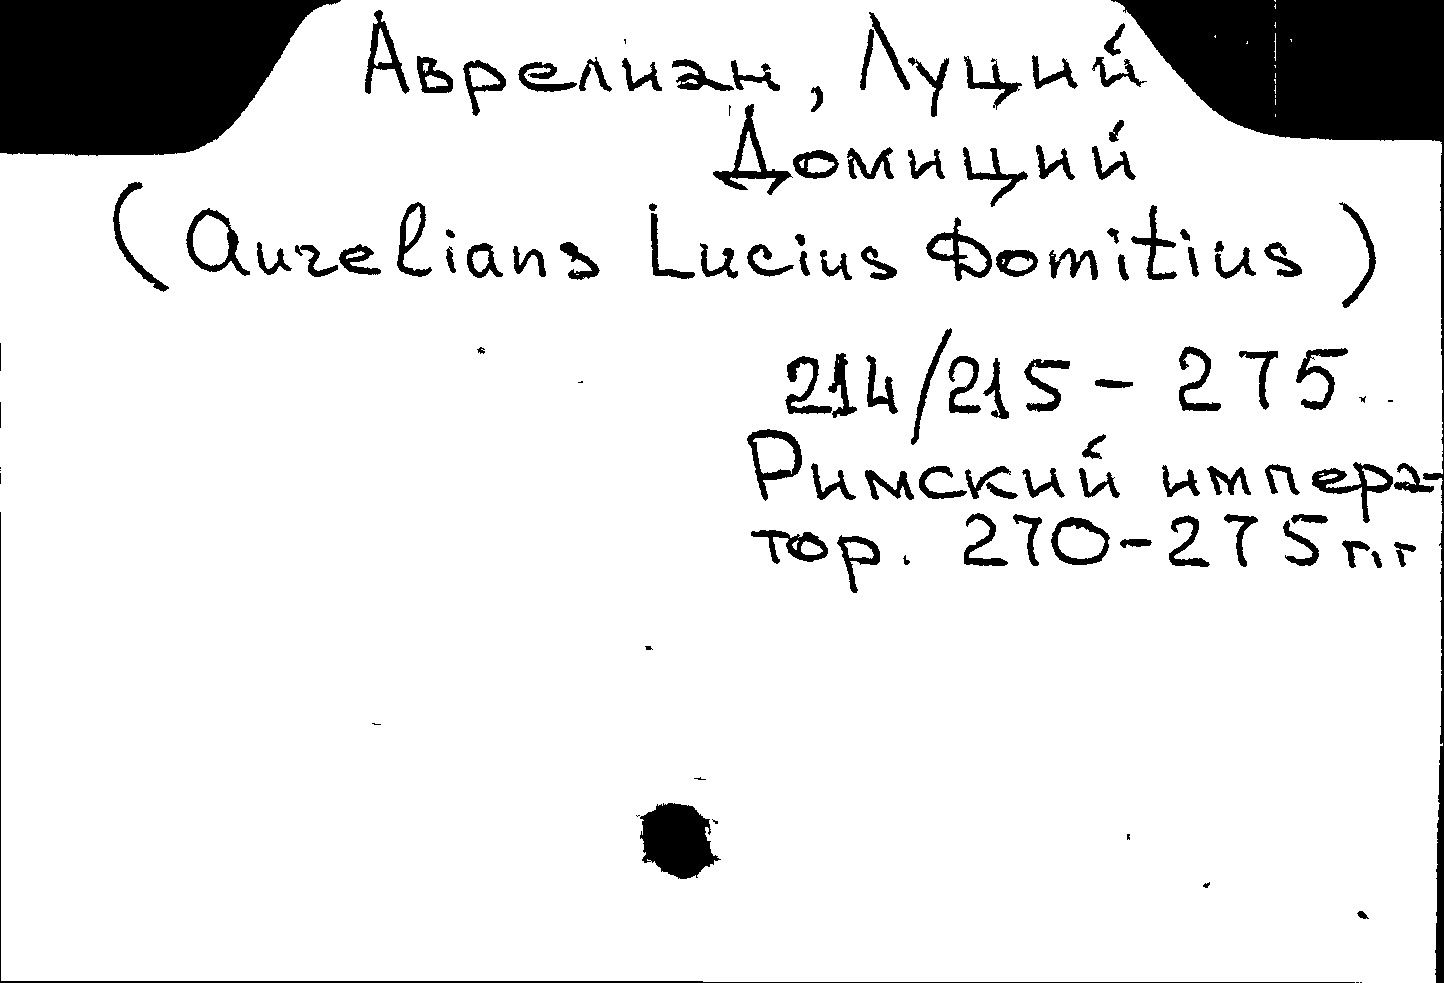 Аврелиан, Луций
Домиций
(Aurelians Lucius Domitius)
214/215 - 275
Римский импера-
тор. 270-275 гг